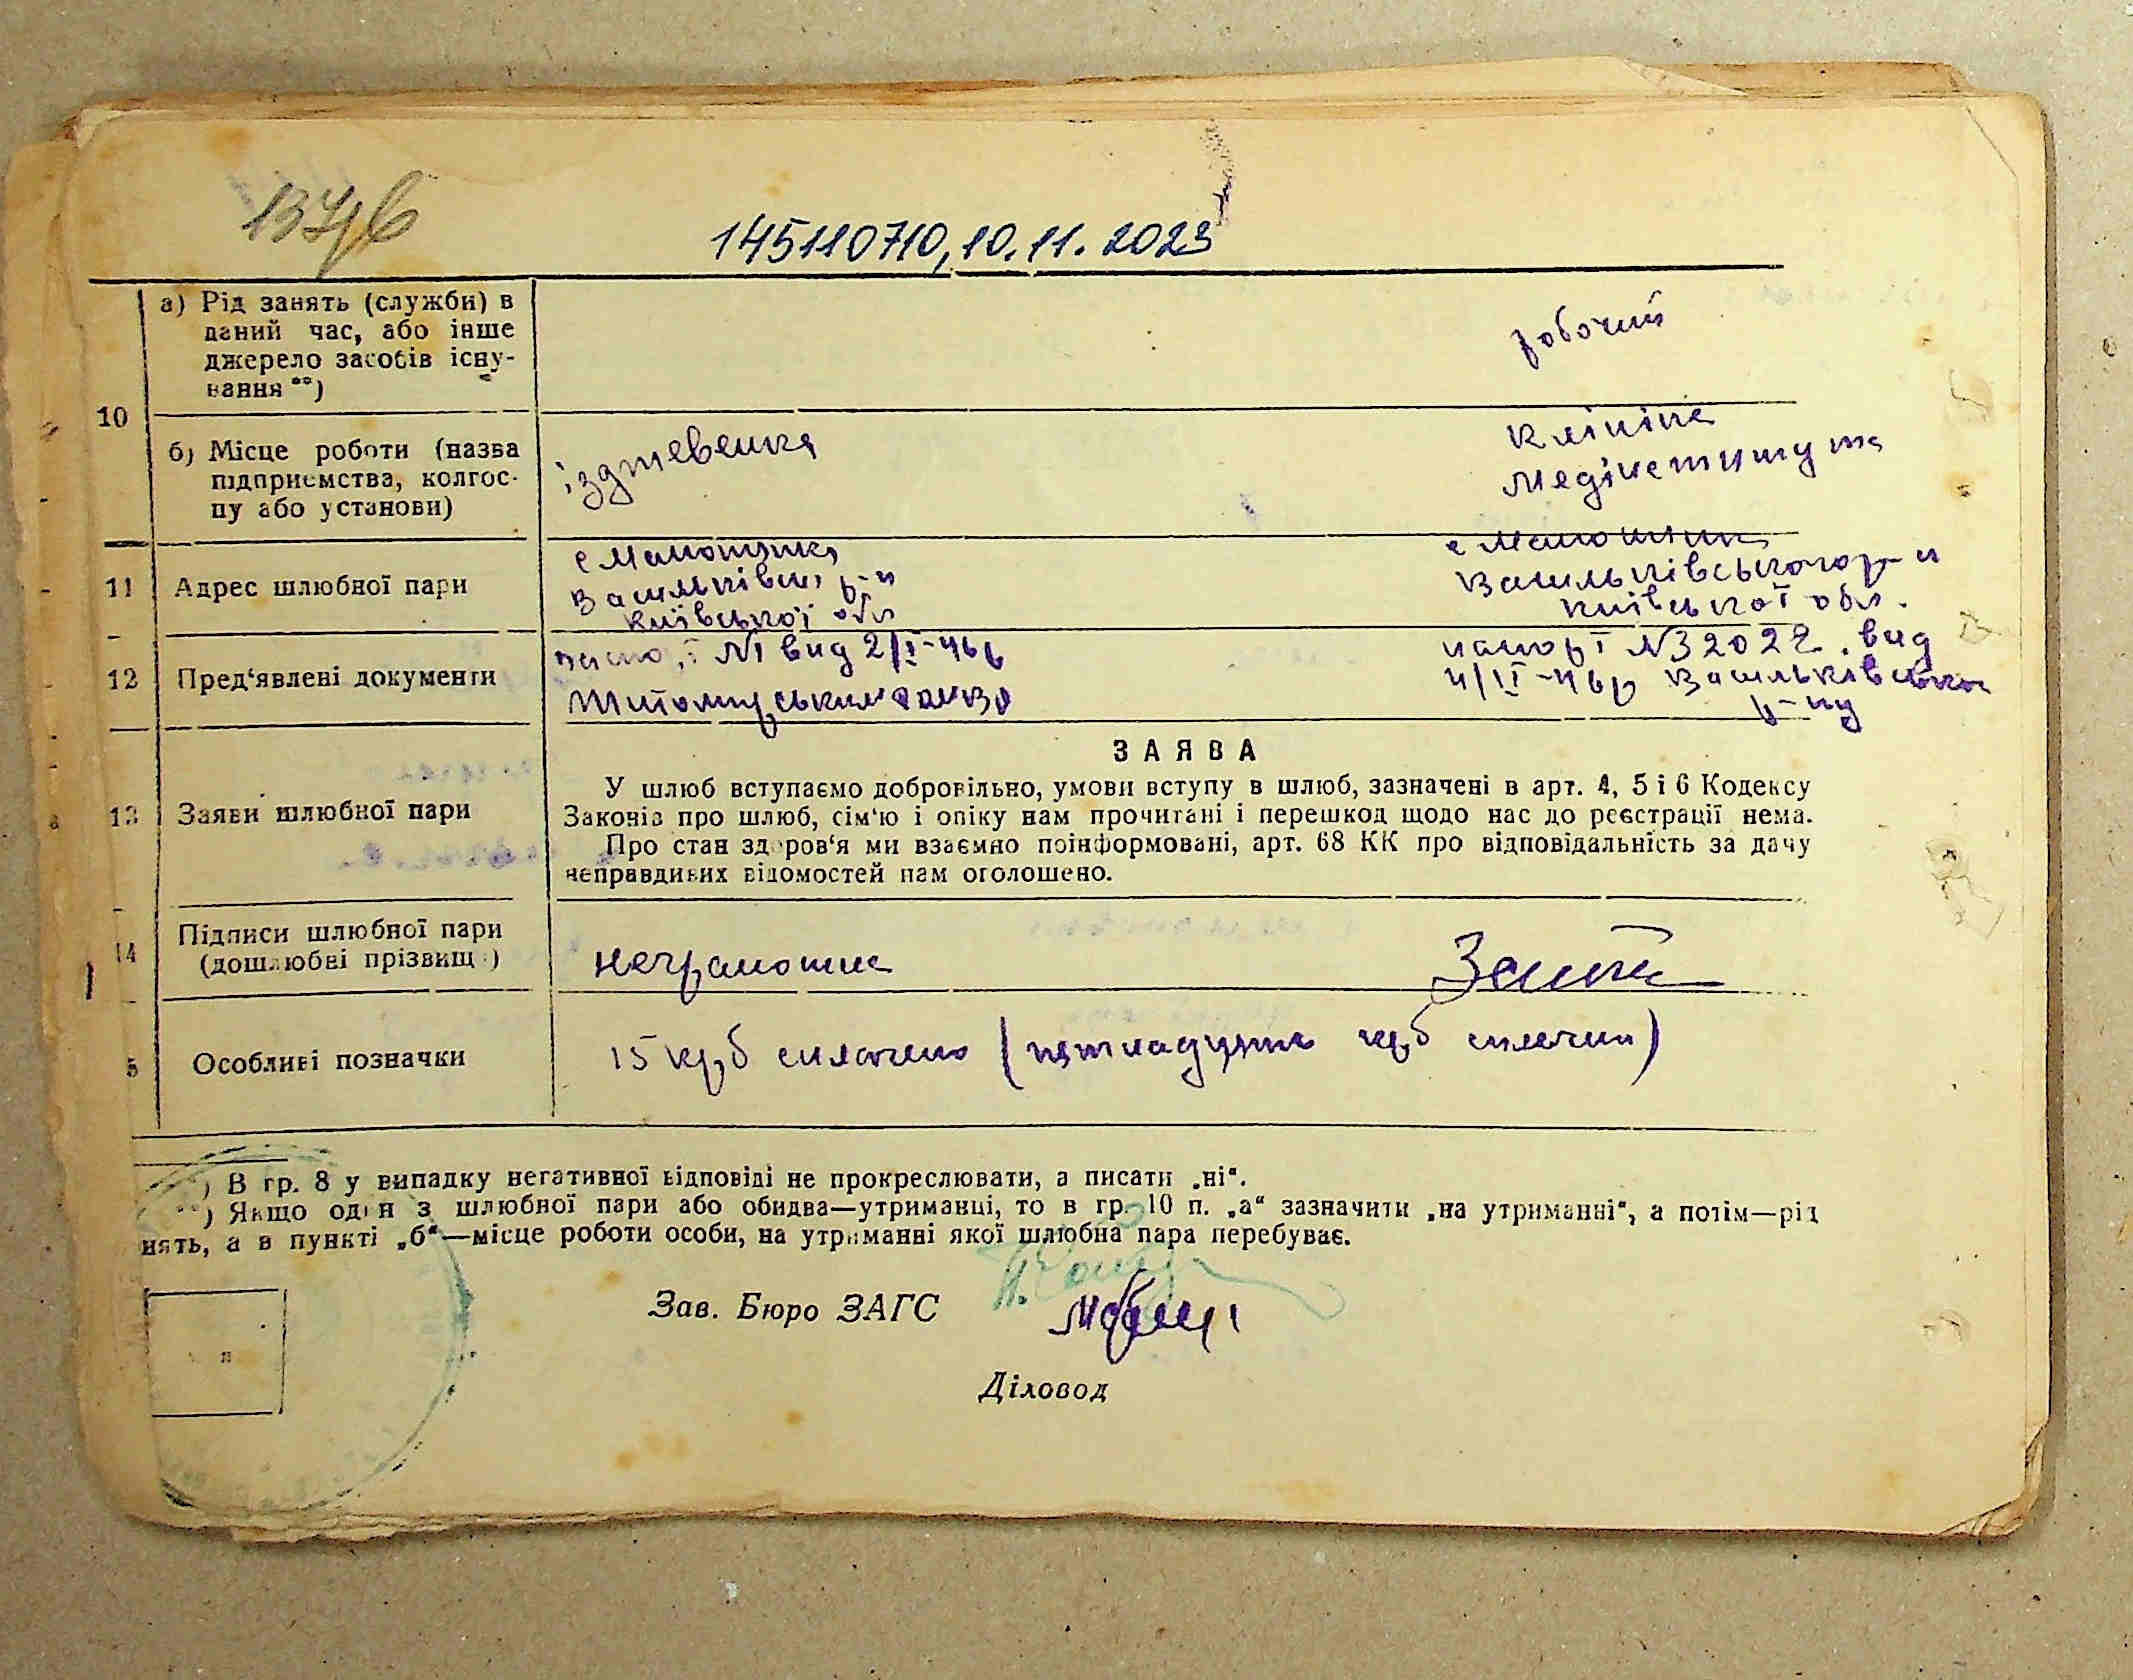 145110710, 10.11.2023
10
а) Рід занять (служби) в
даний час, або інше
джерело засобів існу-
вання **)
робочий
б) Місце роботи (назва
підприємства, колгос-
пу або установи)
Клініка
медінституту
11
Адрес шлюбної пари
Васильківськ р-н
Київської обл
Васильківського р-н
Київської обл.
12
Пред‘явлені документи
вид 2/І-46р
Житомирським
паспорт №32022. вид
Васильківськ
13
Заяви шлюбної пари
ЗАЯВА
У шлюб вступаємо добровільно, умови вступу в шлюб, зазначені в арт. 4, 5 і 6 Кодексу
Законів про шлюб, сім‘ю і опіку нам прочитані і перешкод щодо нас до реєстрації нема.
Про стан здоров‘я ми взаємно поінформовані, арт. 68 КК про відповідальність за дачу
неправдивих відомостей нам оголошено.
14
Підписи шлюбної пари
(дошлюбні прізвищ )
неграмотна
5
Особливі позначки
15 крб сплачено (пятнадцять крб сплачен)
) В гр. 8 у випадку негативної відповіді не прокреслювати, а писати „ні“.
**) Якщо один з шлюбної пари або обидва—утриманці, то в гр. 10 п. „а“ зазначити „на утриманні“, а потім—рід
нять, а в пункті „б“—місце роботи особи, на утриманні якої шлюбна пара перебуває.
Зав. Бюро ЗАГС
Діловод